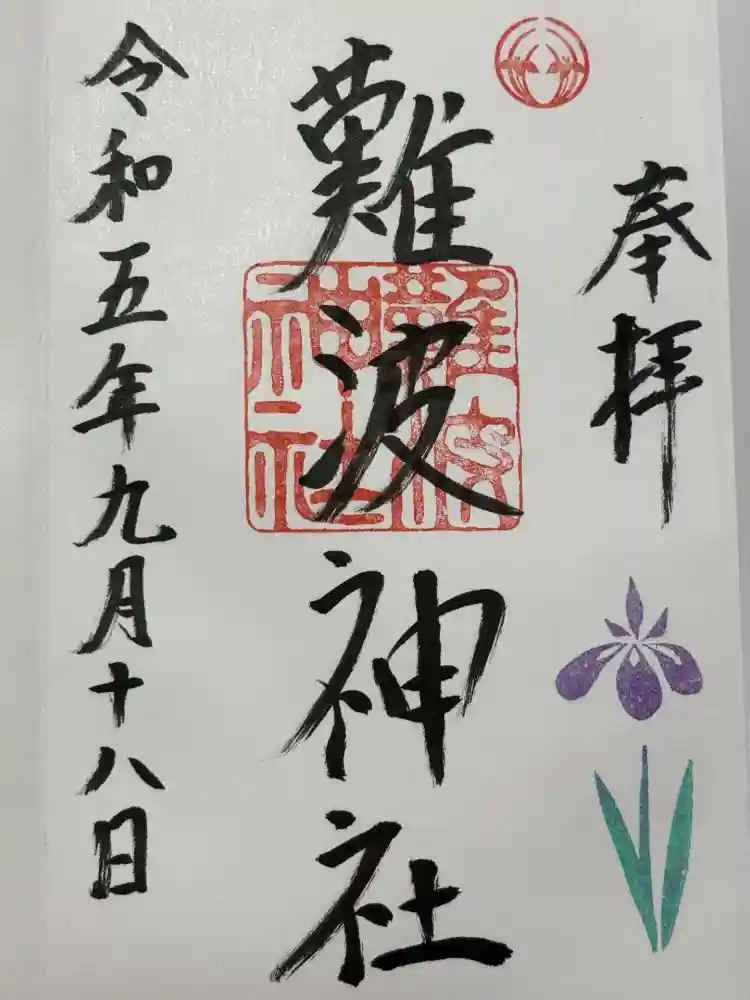 奉拝
難波神社
難波
神社
令和五年九月十八日